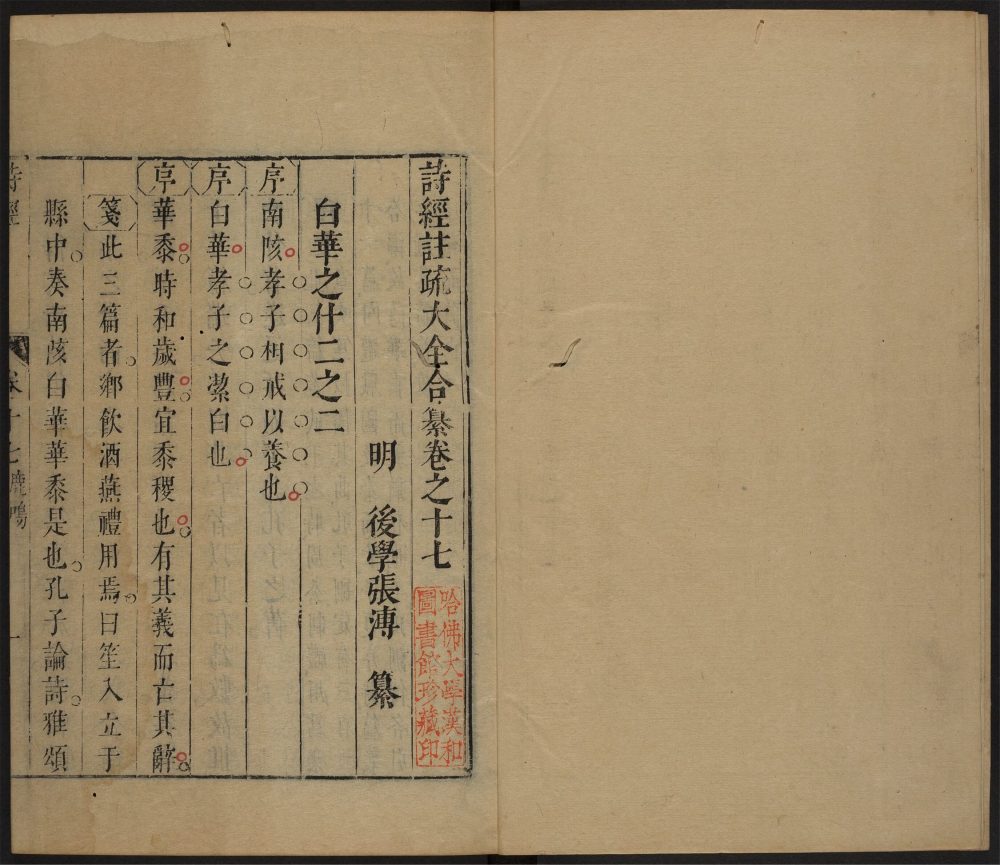 詩經註疏大全合纂卷之十七
哈佛大學漢和
圖書館珍藏印
明 後學張溥 纂
白華之什二之二
序南陔孝子相戒以養也
序白華孝子之潔白也
序華黍時和歲豐宜黍稷也有其義而亡其辭
箋此三篇者鄉飲酒燕禮用焉曰笙入立于
縣中奏南陔白華華黍是也孔子論詩雅頌
詩經 卷十七 鹿鳴 一